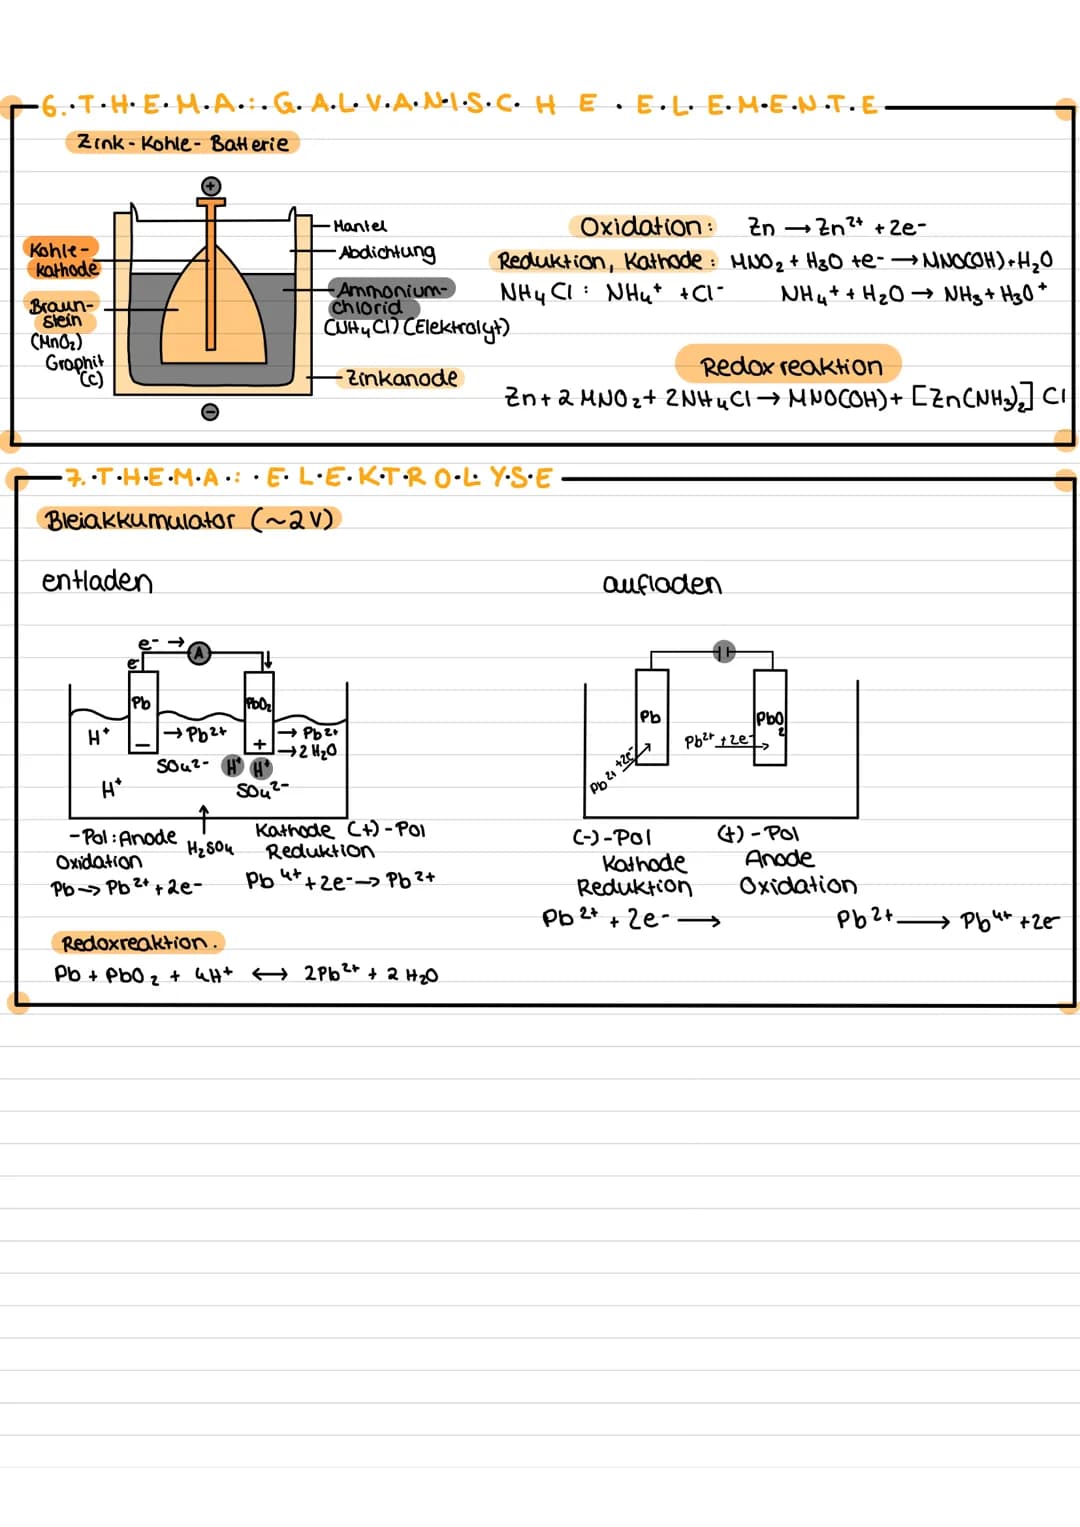 6. THEMA: GALVANISCHE ELEMENTE
Zink-Kohle-Batterie
+
Kohle-
kathode
Braun-
stein
(MnO₂)
Graphit
(C)
-
Mantel
Abdichtung
Ammonium-
chlorid
(NH₄Cl) (Elektrolyt)
Zinkanode
Oxidation: Zn → Zn²⁺ + 2e-
Reduktion, Kathode: MNO₂ + H₃O + e- → MNO(OH) + H₂O
NH₄Cl: NH₄⁺ + Cl- NH₄⁺ + H₂O → NH₃ + H₃O⁺
Redoxreaktion
Zn + 2 MNO₂ + 2NH₄Cl → MNO(OH) + [Zn(NH₃)₂] Cl
7. THEMA: ELEKTROLYSE
Bleiakkumulator (~2V)
entladen
e- → A
e-
Pb
PbO₂
H⁺
→ Pb²⁺
→ Pb²⁺
→ 2 H₂O
-
+
SO₄²- H⁺ H⁺
H⁺
SO₄²-
H₂SO₄
-Pol: Anode
Oxidation
Pb → Pb²⁺ + 2e-
Kathode (+)-Pol
Reduktion
Pb⁴⁺ + 2e- → Pb²⁺
Redoxreaktion.
Pb + PbO₂ + 4H⁺ ↔ 2Pb²⁺ + 2 H₂O
aufladen
Pb
PbO₂
Pb²⁺ + 2e-
Pb²⁺ + 2e-
(-)-Pol
Kathode
Reduktion
Pb²⁺ + 2e- →
(+)-Pol
Anode
Oxidation
Pb²⁺ → Pb⁴⁺ + 2e-